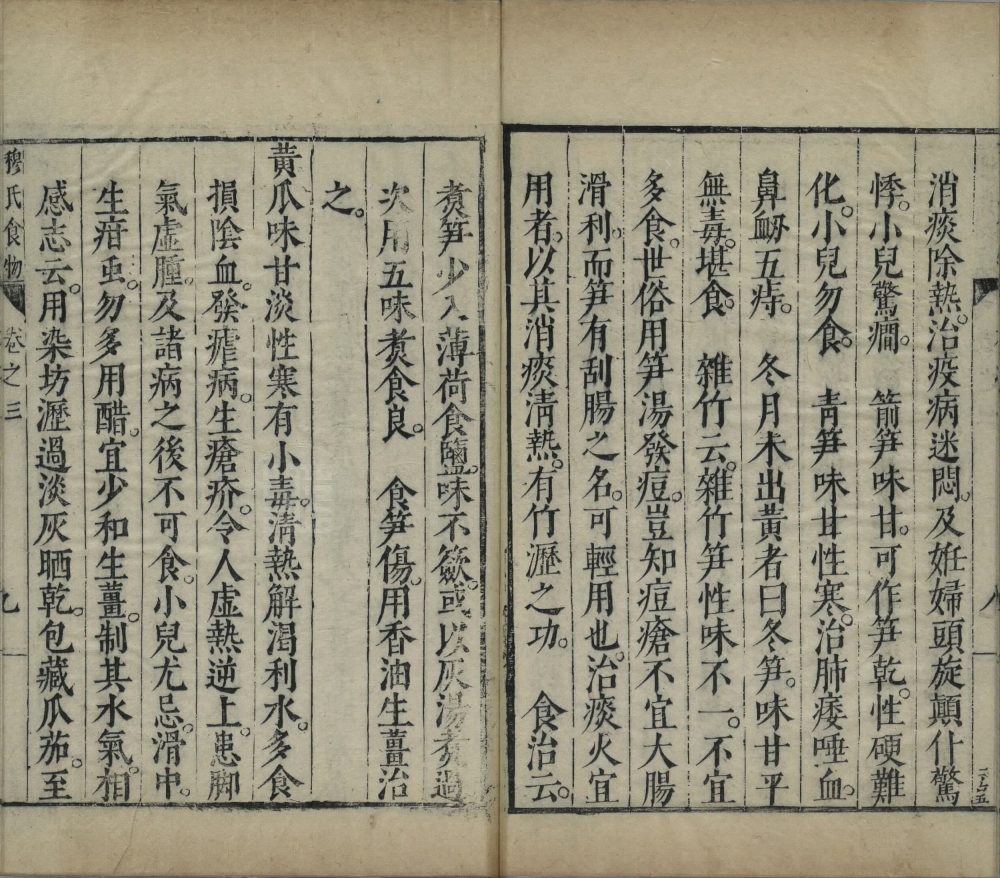 消痰除熱。治疫病迷悶。及姙婦頭旋顛仆驚
悸。小兒驚癎。　箭笋味甘。可作笋乾。性硬難
化。小兒勿食。　青笋味甘性寒。治肺痿唾血。
鼻衂五痔。　冬月未出黃者曰冬笋。味甘平
無毒。堪食。　雜竹云。雜竹笋性味不一。不宜
多食。世俗用笋湯發痘。豈知痘瘡不宜大腸
滑利。而笋有刮腸之名。可輕用也。治痰火宜
用者。以其消痰淸熱。有竹瀝之功。　食治云。
煑笋少入薄荷食鹽。味不簽。或以灰湯煑過
次用五味煑食良。　食笋傷。用香油生薑治
之。
黃瓜味甘淡性寒有小毒。淸熱解渴利水。多食
損陰血。發瘧病。生瘡疥。令人虛熱逆上。患脚
氣虛腫。及諸病之後不可食。小兒尤忌。滑中。
生疳虫。勿多用醋。宜少和生薑。制其水氣。相
感志云。用染坊瀝過淡灰晒乾。包藏瓜茄。至
穆氏食物　卷之三　九